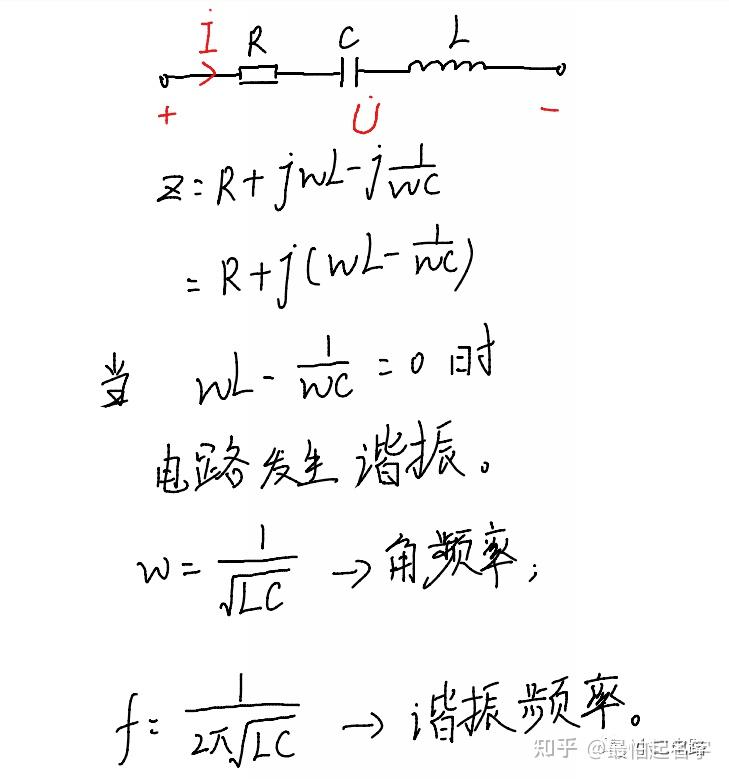 İ R C L
+ U̇ −
z = R + jwL - j 1/wC
= R + j(wL - 1/wC)
当 wL - 1/wC = 0 时
电路发生谐振。
w = 1/√LC → 角频率;
f = 1/2π√LC → 谐振频率。
知乎 @最怕起名字